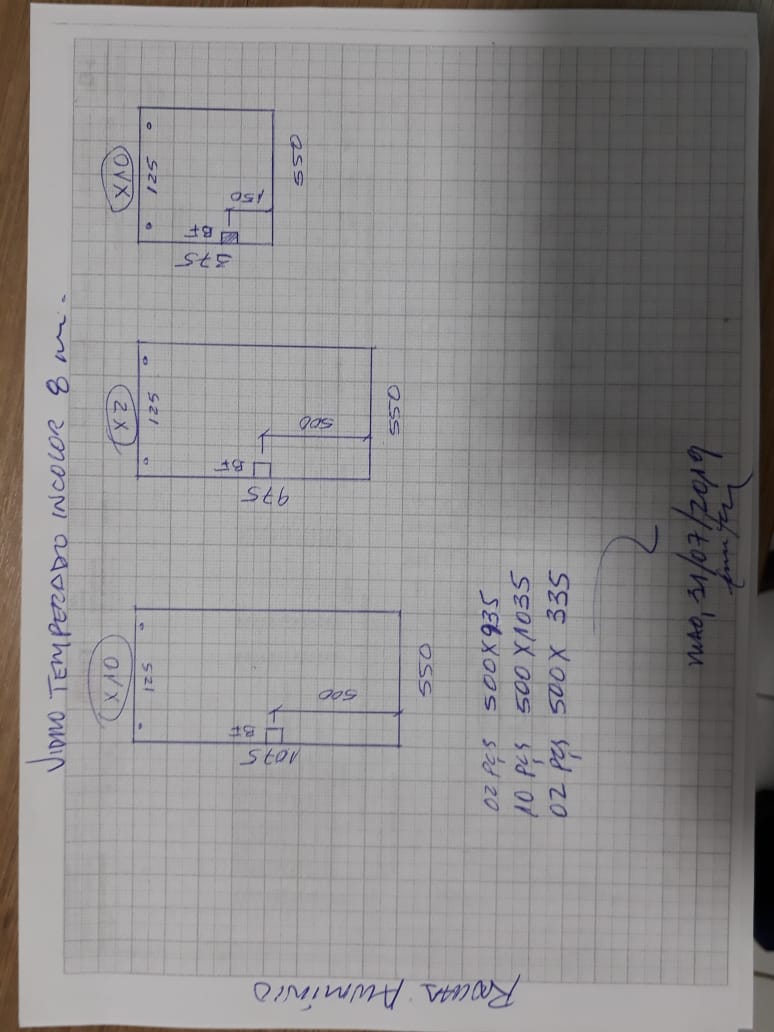 VIDRO TEMPERADO INCOLOR 8 mm.
10X
125
BF
1075
500
550
2X
125
BF
975
500
550
01X
125
BF
375
150
550
02 PÇS 500X935
10 PÇS 500X1035
02 PÇS 500X335
MAO, 31/07/2019
ALUMÍNIO